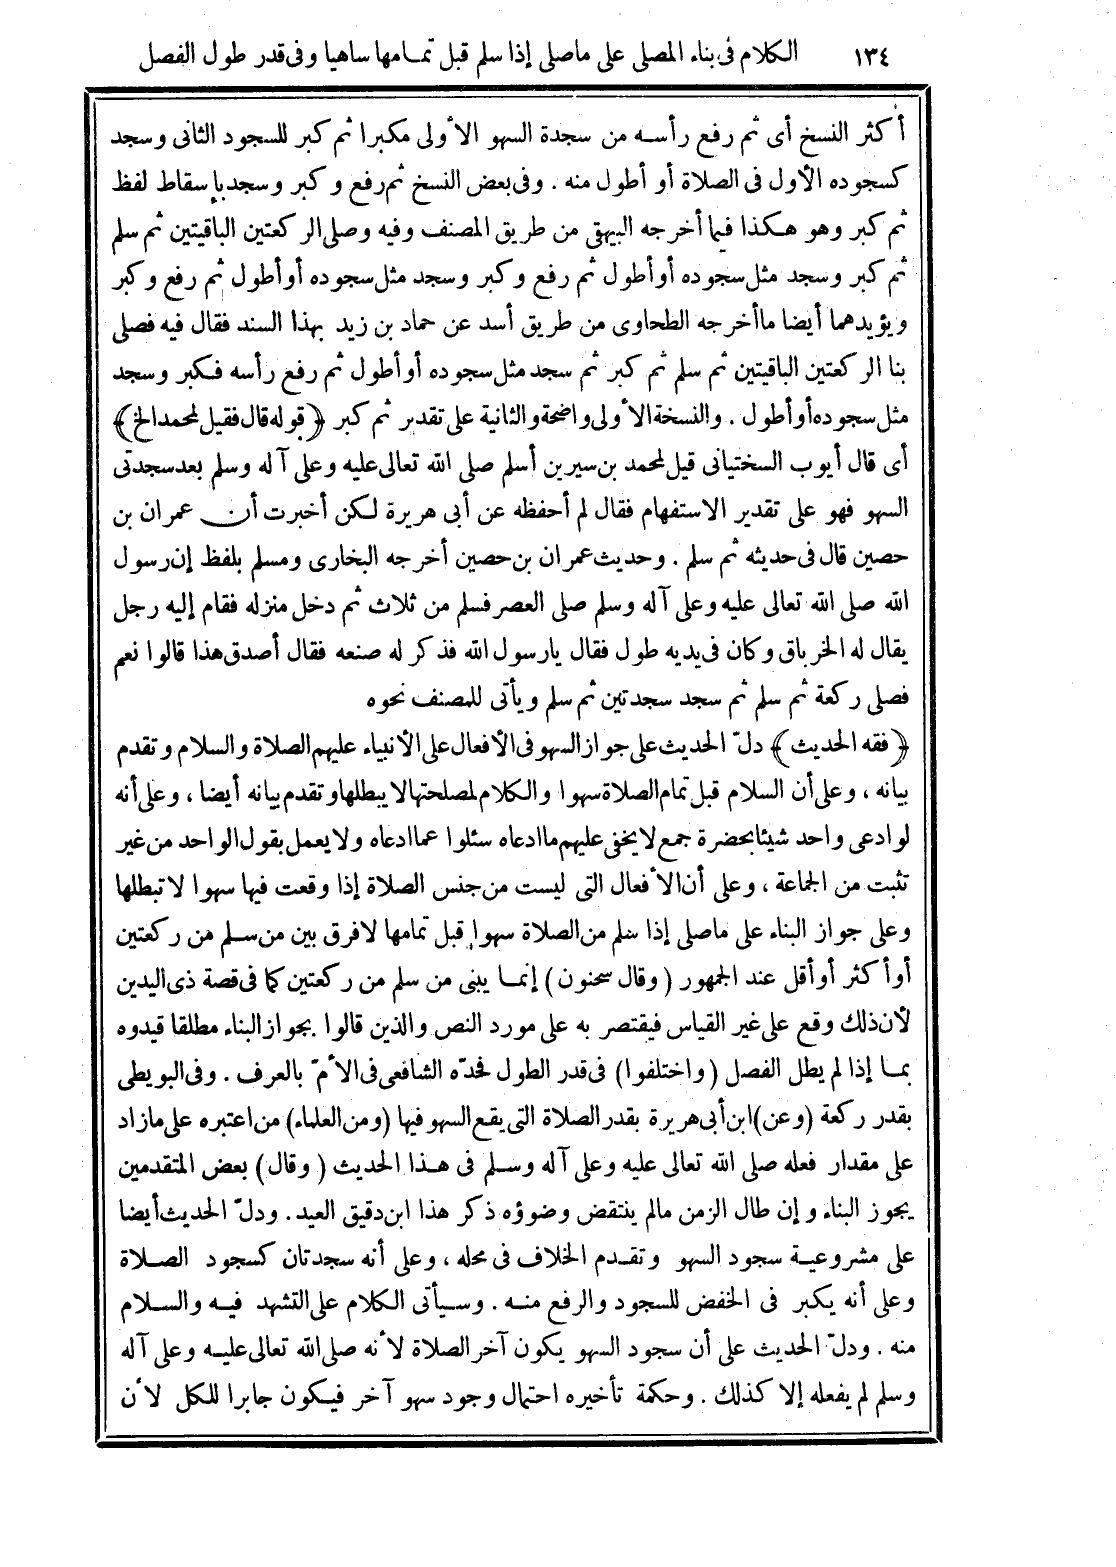 ١٣٤ الكلام فى بناء المصلى على ماصلى إذا سلم قبل تمامها ساهيا وفى قدر طول الفصل
أكثر النسخ أى ثم رفع رأسه من سجدة السهو الأولى مكبرا ثم كبر للسجود الثانى وسجد
كسجوده الأول فى الصلاة أو أطول منه . وفى بعض النسخ ثم رفع وكبر وسجد بإسقاط لفظ
ثم كبر وهو هكذا فيما أخرجه البيهقى من طريق المصنف وفيه وصلى الركعتين الباقيتين ثم سلم
ثم كبر وسجد مثل سجوده أو أطول ثم رفع وكبر وسجد مثل سجوده أو أطول ثم رفع وكبر
ويؤيدهما أيضا ما أخرجه الطحاوى من طريق أسد عن حماد بن زيد بهذا السند فقال فيه فصلى
بنا الركعتين الباقيتين ثم سلم ثم كبر ثم سجد مثل سجوده أو أطول ثم رفع رأسه فكبر وسجد
مثل سجوده أو أطول . والنسخة الأولى واضحة والثانية على تقدير ثم كبر ﴿قوله قال فقيل لمحمد الخ﴾
أى قال أيوب السختيانى قيل لمحمد بن سيرين أسلم صلى الله تعالى عليه وعلى آله وسلم بعد سجدتى
السهو فهو على تقدير الاستفهام فقال لم أحفظه عن أبى هريرة لكن أخبرت أن عمران بن
حصين قال فى حديثه ثم سلم . وحديث عمران بن حصين أخرجه البخارى ومسلم بلفظ إن رسول
الله صلى الله تعالى عليه وعلى آله وسلم صلى العصر فسلم من ثلاث ثم دخل منزله فقام إليه رجل
يقال له الخرباق وكان فى يديه طول فقال يارسول الله فذكر له صنعه فقال أصدق هذا قالوا نعم
فصلى ركعة ثم سلم ثم سجد سجدتين ثم سلم ويأتى للمصنف نحوه
﴿فقه الحديث﴾ دلّ الحديث على جواز السهو فى الأفعال على الأنبياء عليهم الصلاة والسلام وتقدم
بيانه ، وعلى أن السلام قبل تمام الصلاة سهوا والكلام لمصلحتها لا يبطلها وتقدم بيانه أيضا ، وعلى أنه
لو ادعى واحد شيئا بحضرة جمع لا يخفى عليهم ما ادعاه سئلوا عما ادعاه ولا يعمل بقول الواحد من غير
تثبت من الجماعة ، وعلى أن الأفعال التى ليست من جنس الصلاة إذا وقعت فيها سهوا لا تبطلها
وعلى جواز البناء على ماصلى إذا سلم من الصلاة سهوا قبل تمامها لا فرق بين من سلم من ركعتين
أو أكثر أو أقل عند الجمهور (وقال سحنون) إنما يبنى من سلم من ركعتين كما فى قصة ذى اليدين
لأن ذلك وقع على غير القياس فيقتصر به على مورد النص والذين قالوا بجواز البناء مطلقا قيدوه
بما إذا لم يطل الفصل (واختلفوا) فى قدر الطول فحدّه الشافعى فى الأمّ بالعرف . وفى البويطى
بقدر ركعة (وعن) ابن أبى هريرة بقدر الصلاة التى يقع السهو فيها (ومن العلماء) من اعتبره على مازاد
على مقدار فعله صلى الله تعالى عليه وعلى آله وسلم فى هذا الحديث (وقال) بعض المتقدمين
يجوز البناء وإن طال الزمن مالم ينتقض وضوؤه ذكر هذا ابن دقيق العيد . ودلّ الحديث أيضا
على مشروعية سجود السهو وتقدم الخلاف فى محله ، وعلى أنه سجدتان كسجود الصلاة
وعلى أنه يكبر فى الخفض للسجود والرفع منه . وسيأتى الكلام على التشهد فيه والسلام
منه . ودلّ الحديث على أن سجود السهو يكون آخر الصلاة لأنه صلى الله تعالى عليه وعلى آله
وسلم لم يفعله إلا كذلك . وحكمة تأخيره احتمال وجود سهو آخر فيكون جابرا للكل لأن